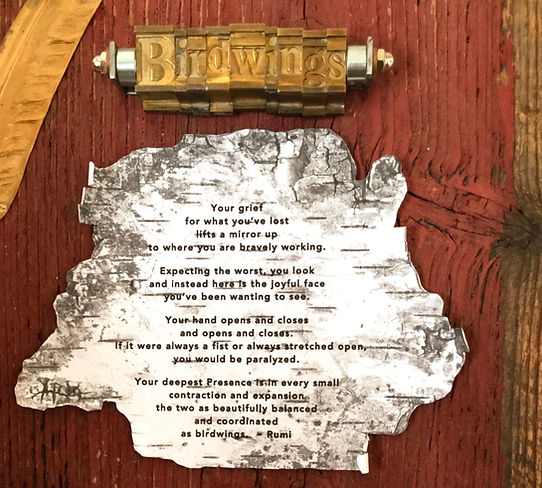 Birdwings
Your grief
for what you've lost
lifts a mirror up
to where you are bravely working.
Expecting the worst, you look
and instead here is the joyful face
you've been wanting to see.
Your hand opens and closes
and opens and closes.
If it were always a fist or always stretched open,
you would be paralyzed.
Your deepest Presence is in every small
contraction and expansion,
the two as beautifully balanced
and coordinated
as birdwings. - Rumi